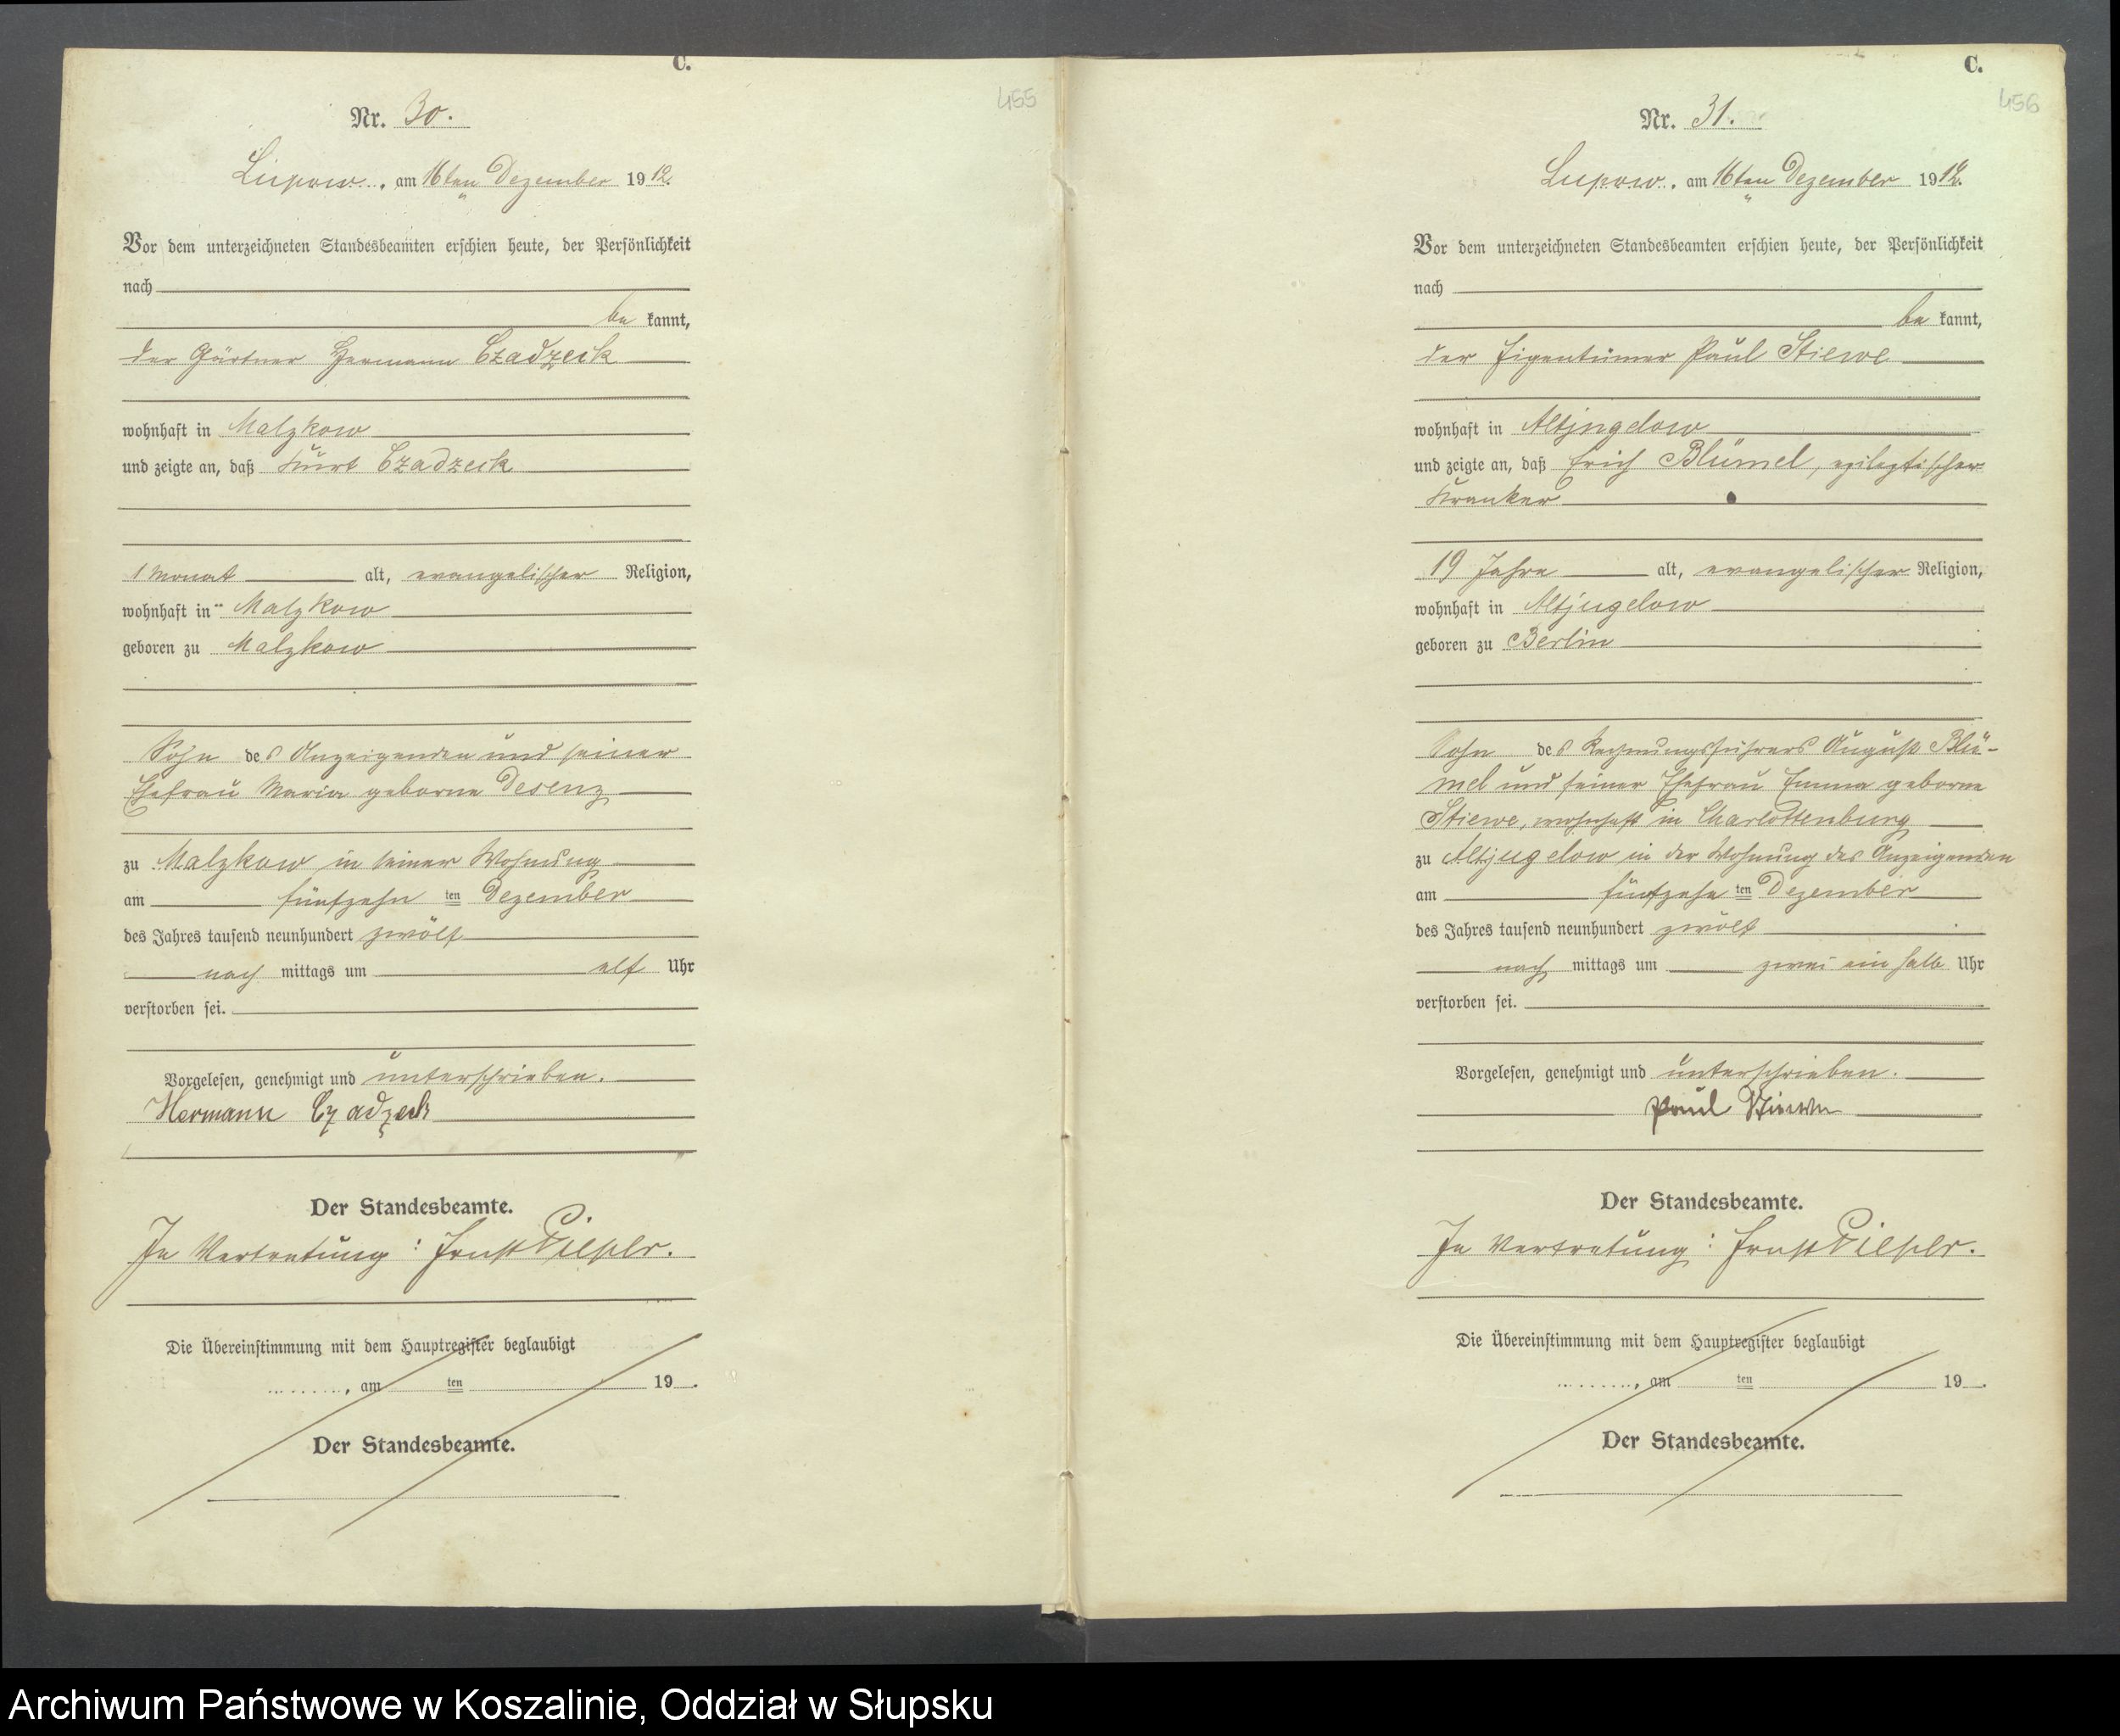 C.
455
Nr. 30.
Lupow, am 16ten Dezember 1912.
Vor dem unterzeichneten Standesbeamten erschien heute, der Persönlichkeit
nach
be kannt,
der Gärtner Hermann Czadzeck
wohnhaft in Malzkow
und zeigte an, daß Kurt Czadzeck
1 Monat alt, evangelischer Religion,
wohnhaft in Malzkow
geboren zu Malzkow
Sohn des Anzeigenden und seiner
Ehefrau Maria geborne Desenz
zu Malzkow in seiner Wohnung
am fünfzehn ten Dezember
des Jahres tausend neunhundert zwölf
nach mittags um elf Uhr
verstorben sei.
Vorgelesen, genehmigt und unterschrieben.
Hermann Czadzeck
Der Standesbeamte.
In Vertretung: Ernst
Die Übereinstimmung mit dem Hauptregister beglaubigt
, am ten 19 .
Der Standesbeamte.
C.
456
Nr. 31.
Lupow, am 16ten Dezember 1912.
Vor dem unterzeichneten Standesbeamten erschien heute, der Persönlichkeit
nach
be kannt,
der Eigentümer Paul Stiewe
wohnhaft in Altjugelow
und zeigte an, daß Erich Blümel, epileptischer
Kranker
19 Jahre alt, evangelischer Religion,
wohnhaft in Altjugelow
geboren zu Berlin
Sohn des Rechnungsführers August Blü-
mel und seiner Ehefrau Emma geborne
Stiewe, wohnhaft in Charlottenburg
zu Altjugelow in der Wohnung des Anzeigenden
am fünfzehn ten Dezember
des Jahres tausend neunhundert zwölf
nach mittags um zwei ein halb Uhr
verstorben sei.
Vorgelesen, genehmigt und unterschrieben.
Paul Stiewe
Der Standesbeamte.
In Vertretung: Ernst
Die Übereinstimmung mit dem Hauptregister beglaubigt
, am ten 19 .
Der Standesbeamte.
Archiwum Państwowe w Koszalinie, Oddział w Słupsku